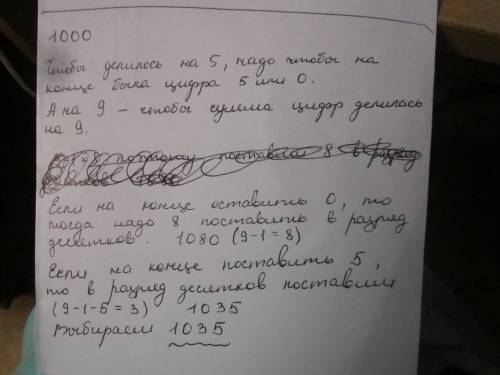 1000
Чтобы делилось на 5, надо чтобы на
конце была цифра 5 или 0.
А на 9 – чтобы сумма цифр делилась
на 9.
поставим 8 в разряд
Если на конце оставить 0, то
тогда надо 8 поставить в разряд
десятков. 1080 (9-1=8)
Если на конце поставить 5,
то в разряд десятков поставим
(9-1-5=3) 1035
Выбираем 1035